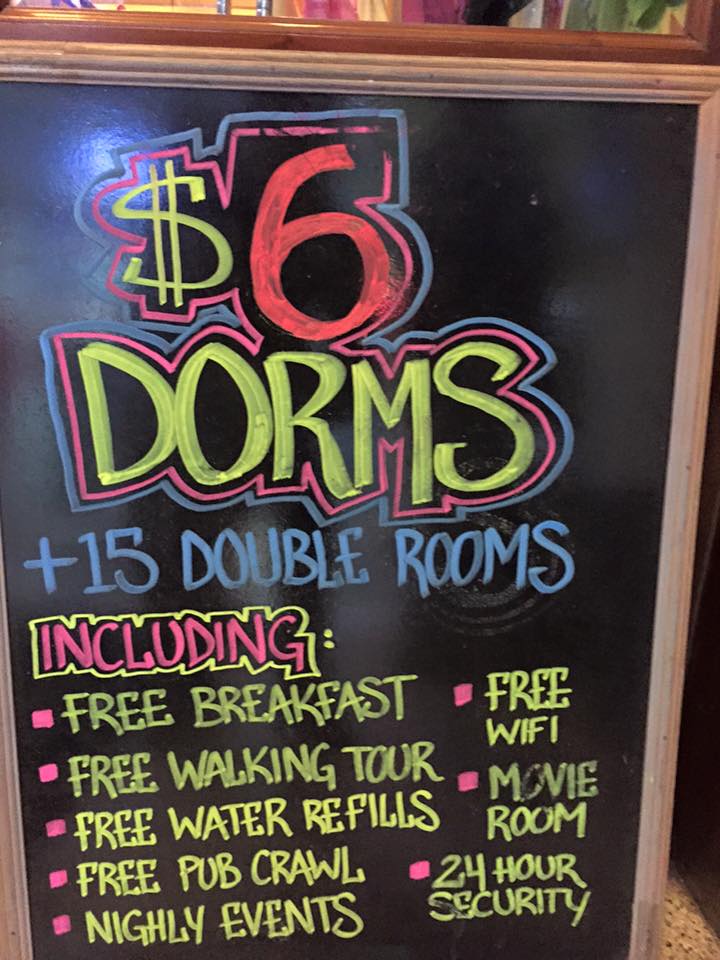 $6
DORMS
+15 DOUBLE ROOMS
INCLUDING:
FREE BREAKFAST
FREE WALKING TOUR
FREE WATER REFILLS
FREE PUB CRAWL
NIGHLY EVENTS
FREE
WIFI
MOVIE
ROOM
24 HOUR
SECURITY